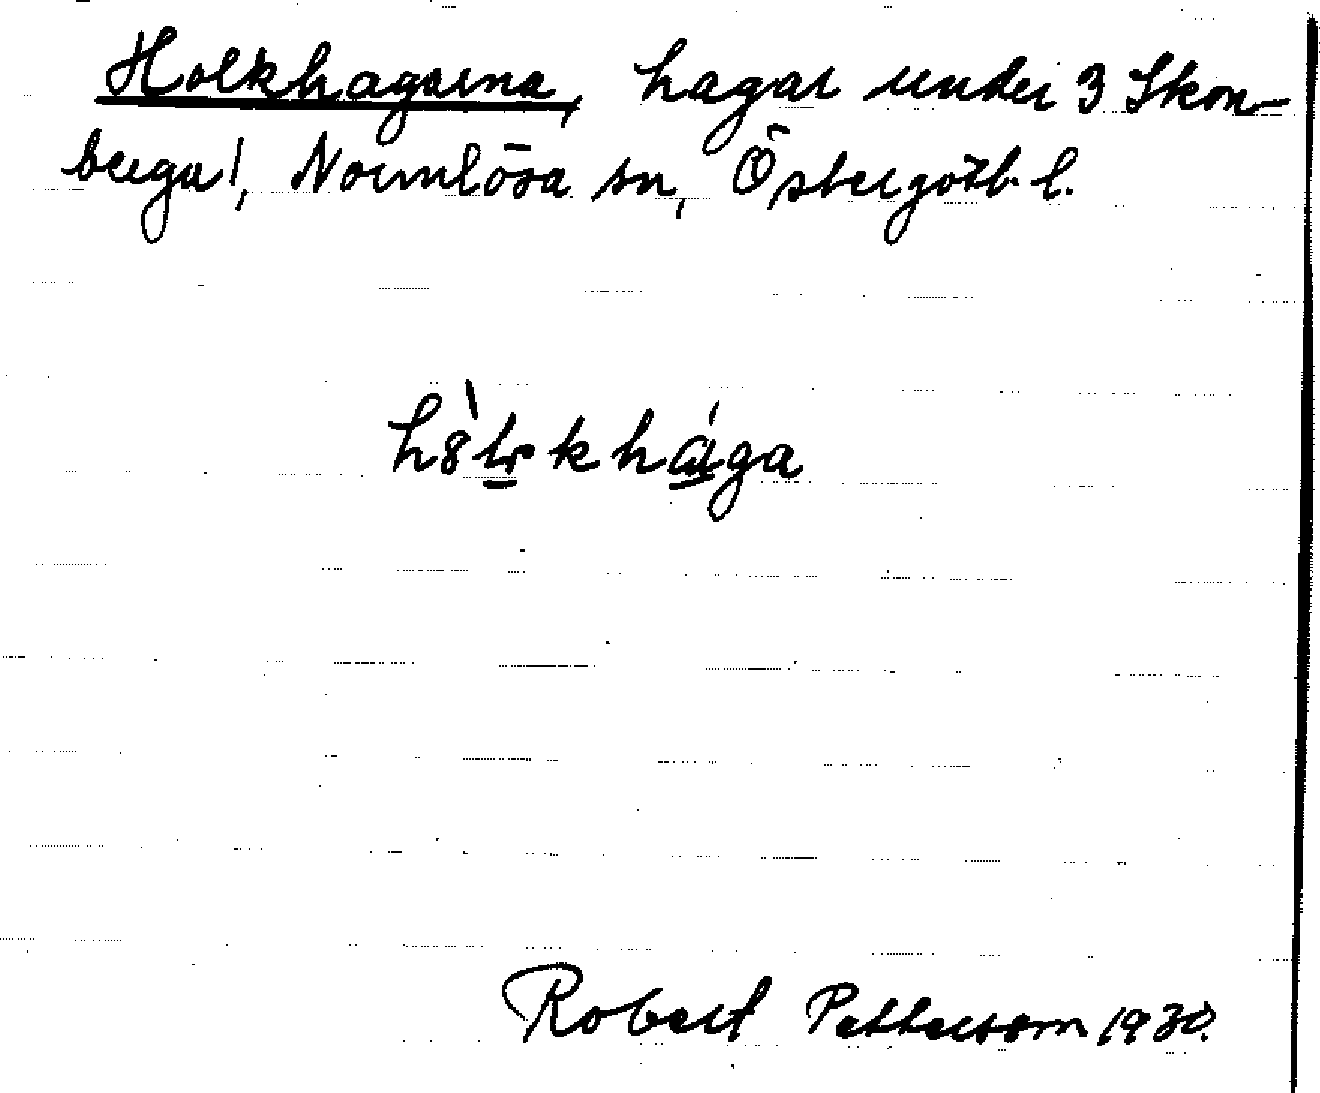 Holkhagarna, hagar under 3 Skon-
berga!, Normlösa sn, Östergötl. l.
Robert Pettersson 1930.